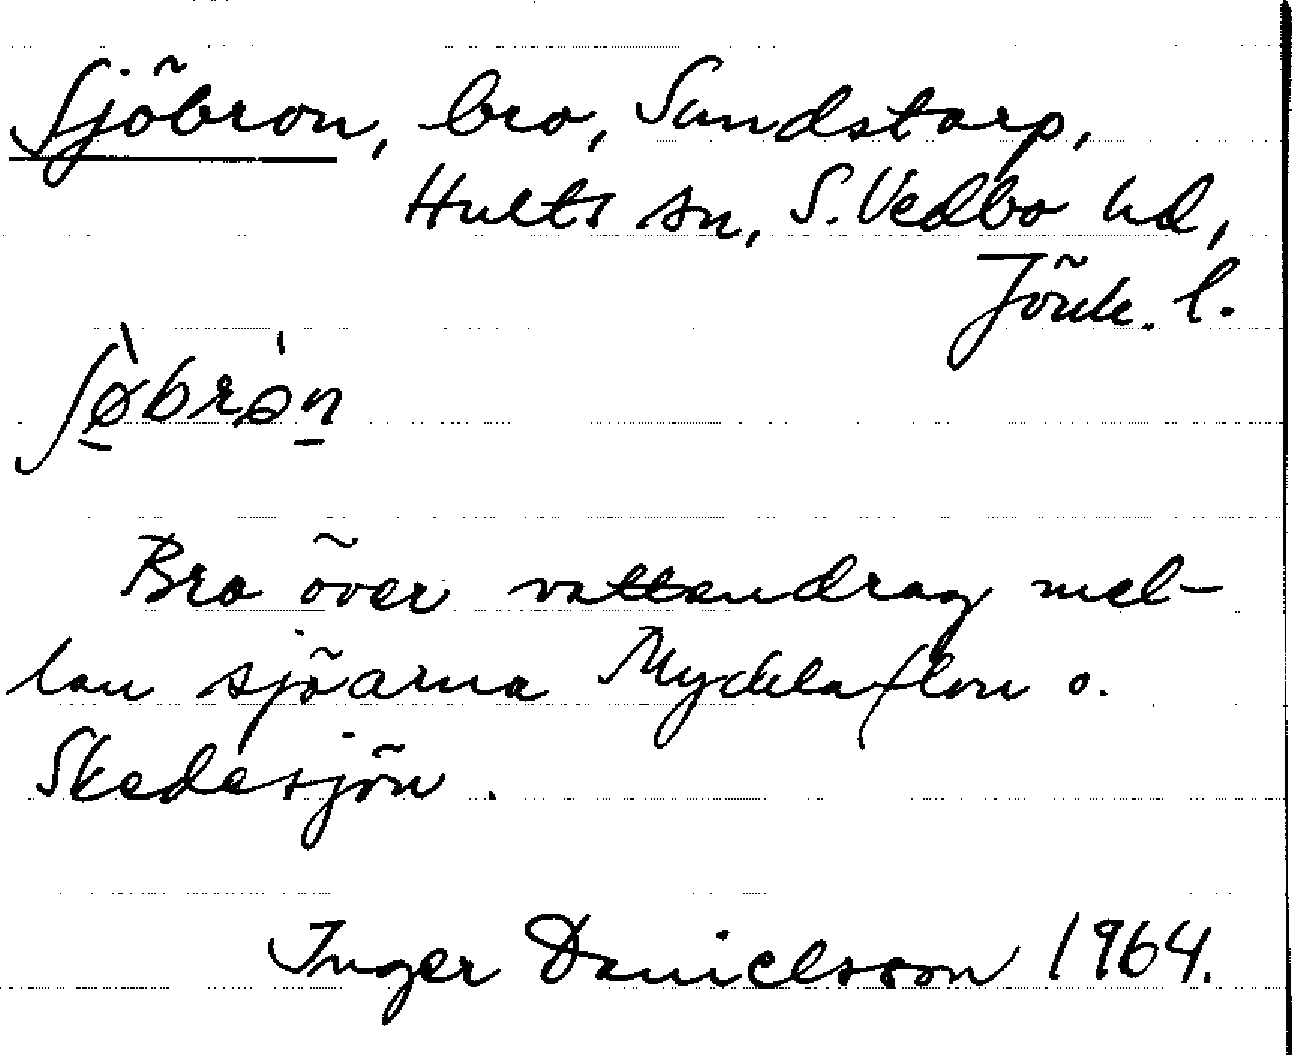 Sjöbron, bro, Sandstorp,
Hults sn, S. Vedbo hd,
Jönk. l.
ʃø̠̀brə̍n̠
Bro över vattendrag mel-
lan sjöarna Mycklaflon o.
Skedesjön.
Inger Danielsson 1964.